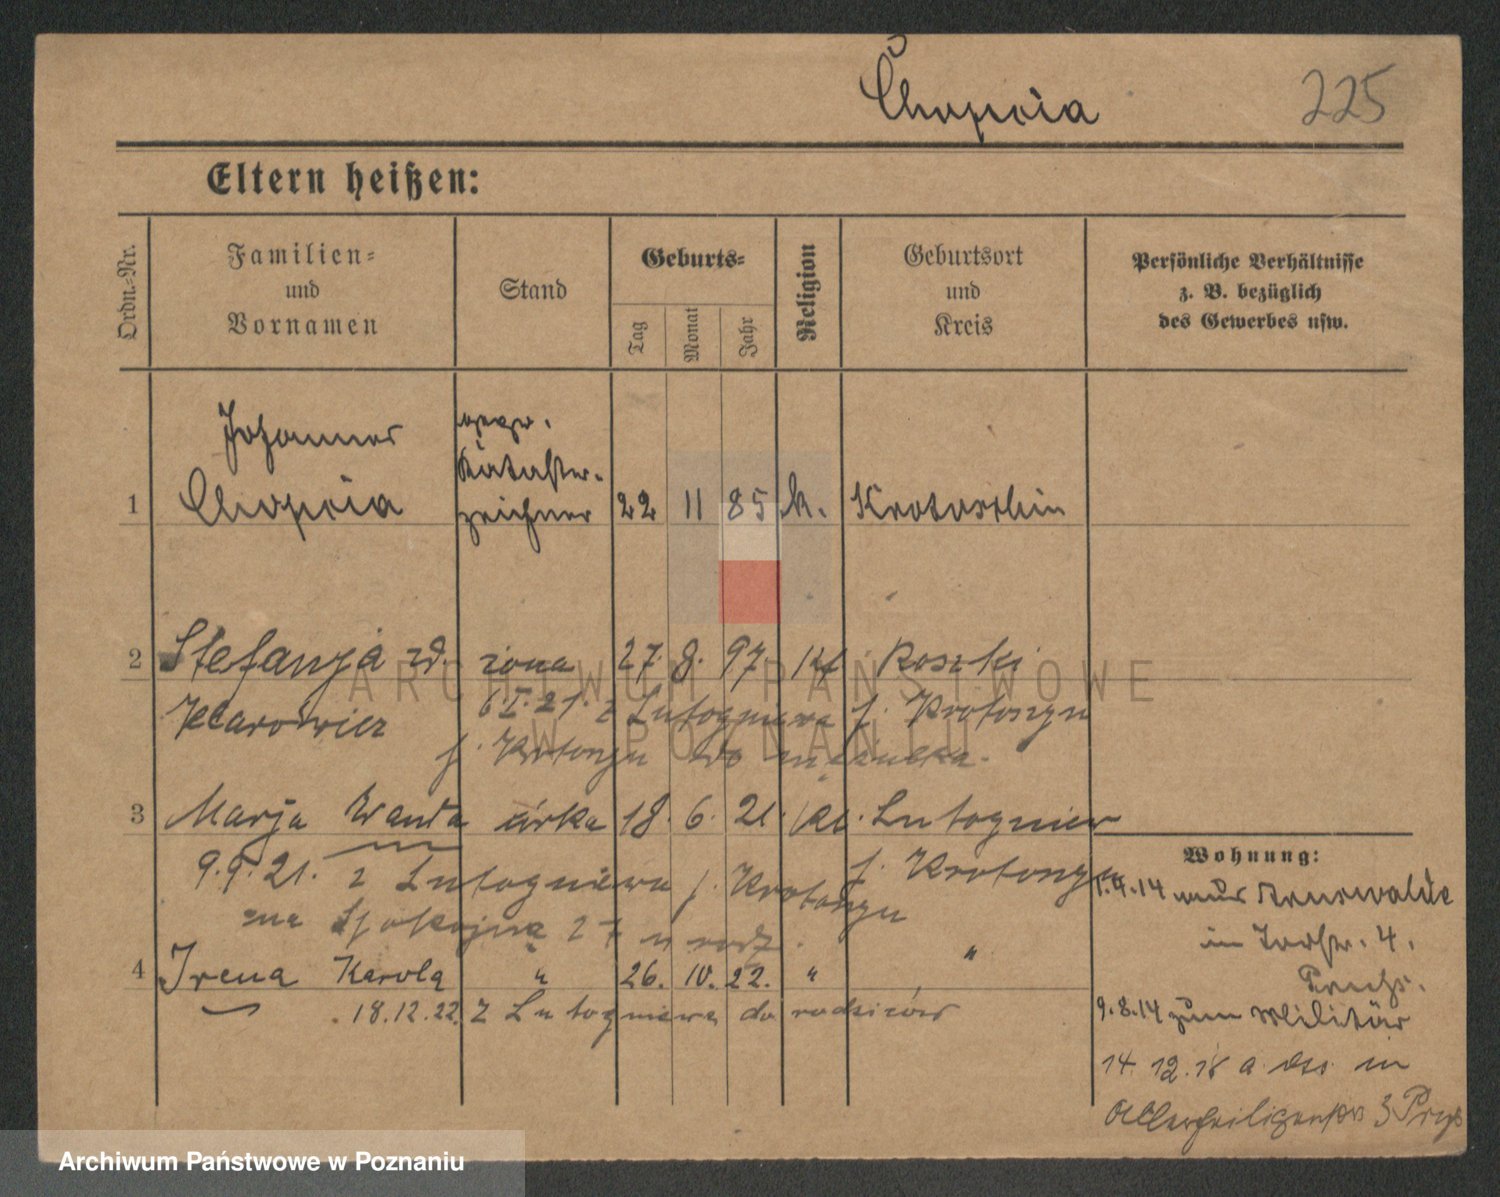 Chopcia 225
Eltern heißen:
Ordn.-Nr.
Familien-
und
Vornamen
Stand
Geburts-
Tag
Monat
Jahr
Religion
Geburtsort
und
Kreis
Persönliche Verhältnisse
z. B. bezüglich
des Gewerbes usw.
Johannes
Kataster-
1 Chopcia zeichner 22 11 85 k. Krotoschin
2 Stefanja zd. żona 27. 8. 97 kt Roszki
Klarowicz
z Lutogniewa p. Krotoszyn
p. Krotoszyn do
3 Marja Wanda córka 18. 6. 21. kt. Lutogniew
p. Krotoszyn
9.9.21. z Lutogniewa p. Krotoszyn
na Spokojną 27
4 Irena Karola " 26. 10. 22. " "
18.12.22. z Lutogniewa do rodziców
Wohnung:
1.4.14 aus Arnswalde
in 4.
9.8.14 zum Militär
14.12.18 a. in
Allerheiligenstr 3
ARCHIWUM PAŃSTWOWE
W POZNANIU
Archiwum Państwowe w Poznaniu